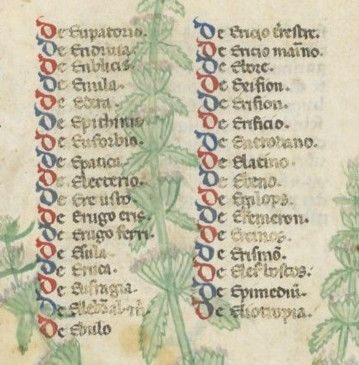 De Eupatorio.
De Endiuia.
De Enblicis.
De Enula.
De Edera.
De Epithimis
De Euforbio.
De Epatica.
De Electerio.
De Ere usto
De Erugo eris.
De Erugo ferri.
De Esula.
De Eruca.
De Eufragia.
De
De Ebulo
De Ericio trestre.
De Ericio maīno.
De Elore.
De Erision.
De Erision.
De Erificio.
De
De Elatino
De Ebeno.
De Egilops.
De Efemeron.
De Ercinos.
De Erismō.
De
De Epimediū.
De Eliotropia.